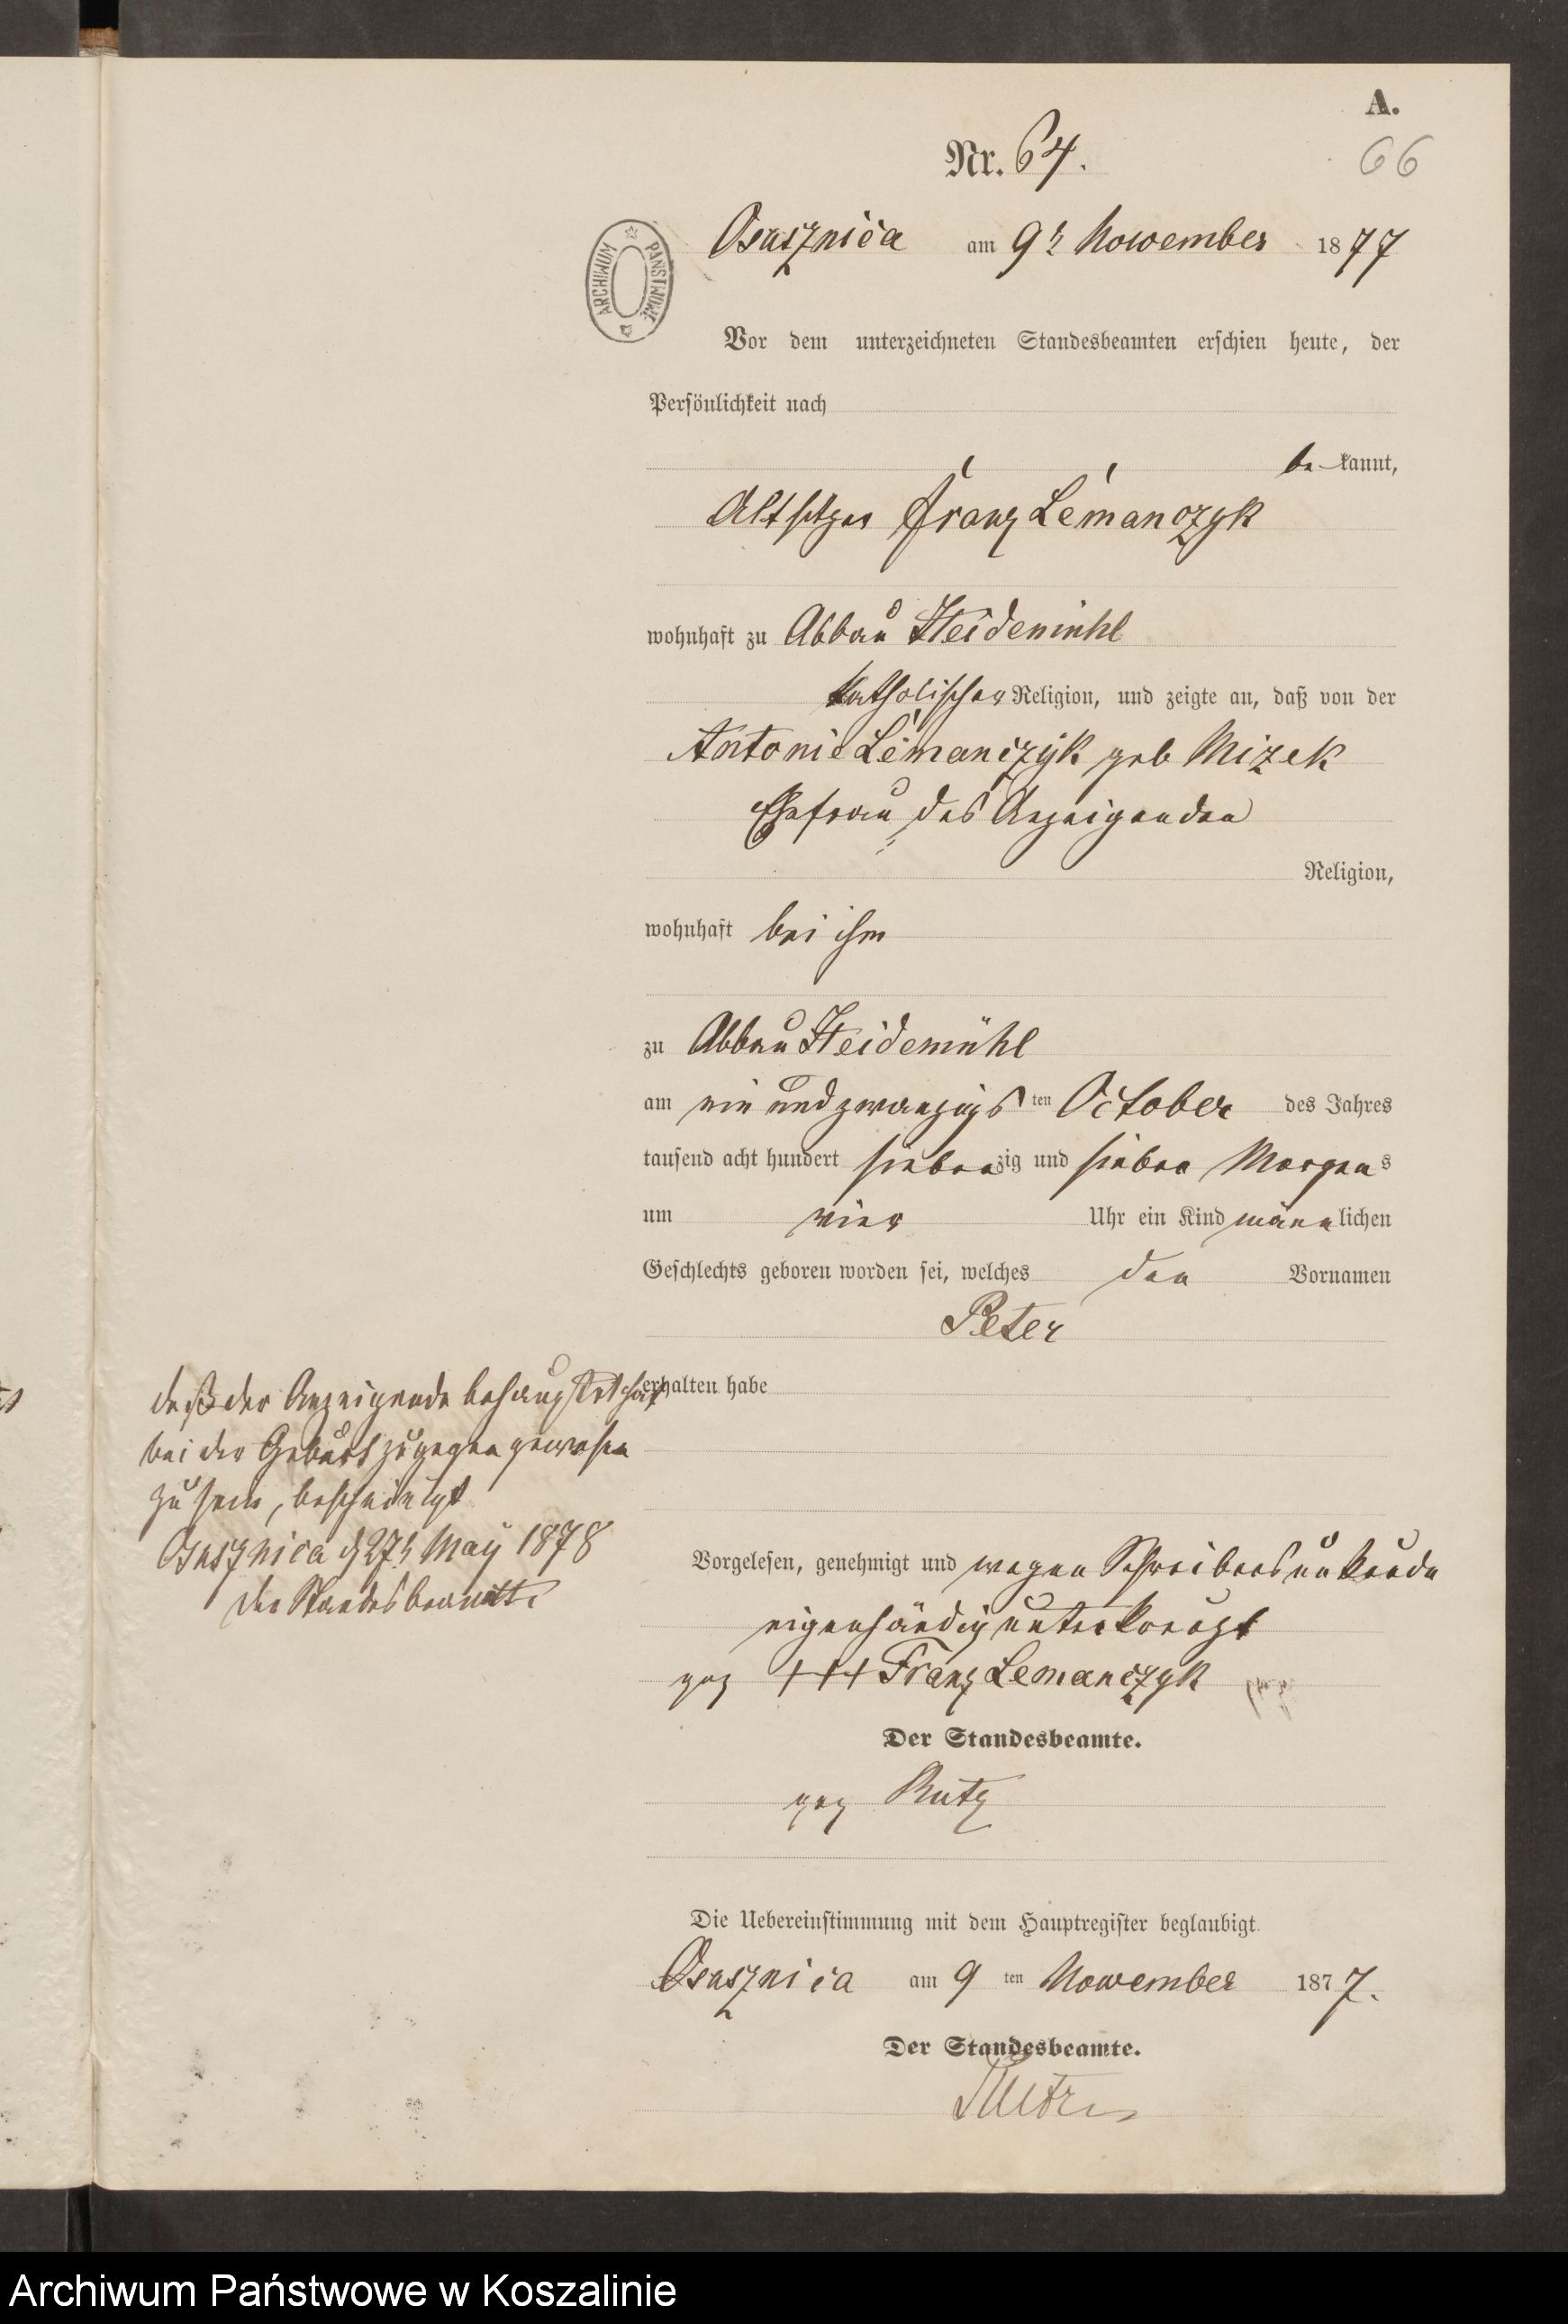 A.
Nr. 64.
66
Osusznica am 9t November 1877
ARCHIWUM PAŃSTWOWE
Vor dem unterzeichneten Standesbeamten erschien heute, der
Persönlichkeit nach
be kannt,
Altsitzer Franz Lemanczyk
wohnhaft zu Abbau Heidemühl
katholischer Religion, und zeigte an, daß von der
Antonie Lemanczyk geb Mizek
Ehefrau des Anzeigenden
Religion,
wohnhaft bei ihm
zu Abbau Heidemühl
am ein und zwanzigs ten October des Jahres
tausend acht hundert sieben zig und sieben Morgen s
um vier Uhr ein Kind männ lichen
Geschlechts geboren worden sei, welches den Vornamen
Peter
erhalten habe
daß der Anzeigende behauptet hat
bei der Geburt zugegen gewesen
zu sein, bescheinigt
Osusznica d 27t May 1878
Der Standesbeamte
Vorgelesen, genehmigt und wegen Schreibensunkunde
eigenhändig unterkreuzt
gez +++ Franz Lemanczyk
Der Standesbeamte.
gez Rutz
Die Uebereinstimmung mit dem Hauptregister beglaubigt
Osusznica am 9 ten November 187 7.
Der Standesbeamte.
Archiwum Państwowe w Koszalinie